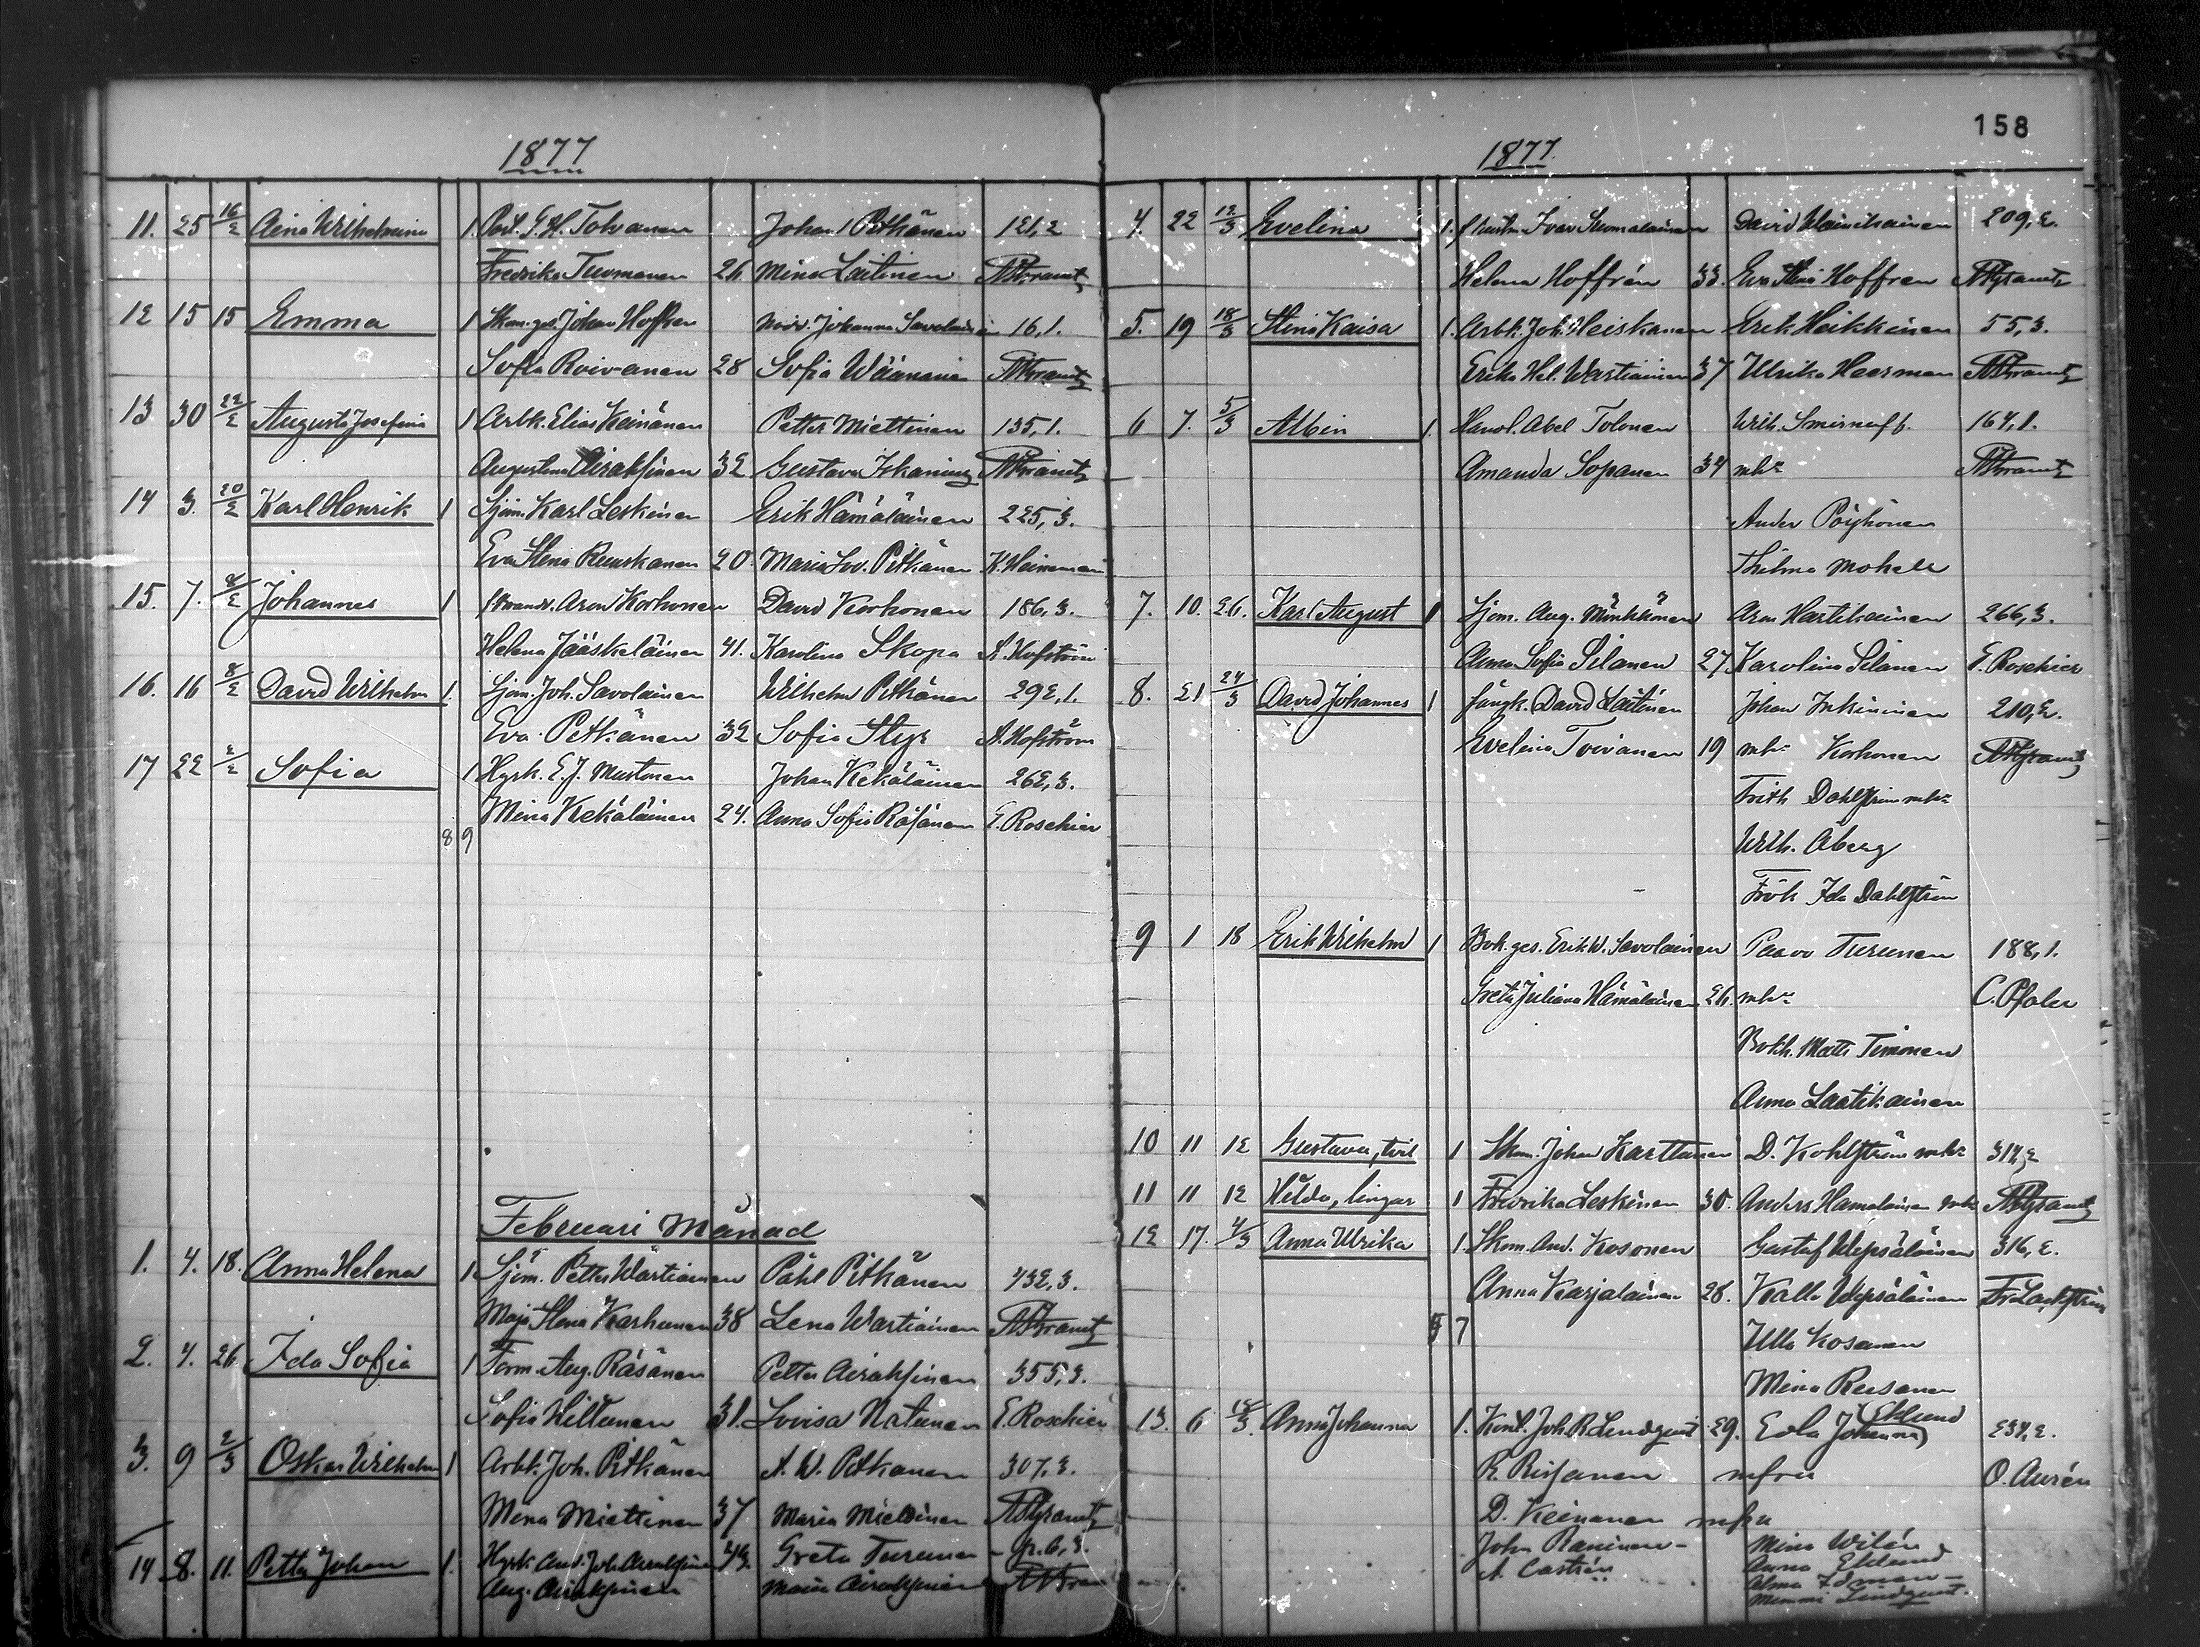 1877
11. 25 16/2 Aina Wilhelmina 1 Johan Pitkänen 121,2
Fredrika Tuomanen 26 Mina Laitinen
12 15 15 Emma 1 Johan Hoffren Johanna 16,1.
Sofia Roivanen 28 Sofia Wäänänen
13 30 22/2 Augusta Josefina 1 Arbk. Elias Keinänen Petter Miettinen 135,1.
Airaksinen 32 Gustava
14 3. 20/2 Karl Henrik 1 Sjöm. Karl Leskinen Erik Hämäläinen 225,3.
Eva Stena Ruuskanen 20 Maria Lov. Pitkänen K. Heineman
15. 7. 4/2 Johannes 1 Aron Korhonen David Korhonen 186,3.
Helena Jääskeläinen 41. Karolina Skopa A. Hofström
16. 16 8/2 David Wilhelm 1. Sjöm. Joh. Savolainen Wilhelm Pitkänen 292,1.
Eva Pitkänen 32 Sofia Styf A. Hofström
17 22 2/2 Sofia 1 Hyrk. E. J. Mustonen Johan Kekäläinen 262,3.
Mina Kekäläinen 24. Anna Sofia Räsänen E. Roschier
8 9
Februari Månad
1. 4. 18. Anna Helena 1 Sjöm. Petter Wartiainen Påhl Pitkänen 432,3.
Maja Stena Karhunen 38 Lena Wartiainen
2. 4. 26 Ida Sofia 1 Form. Aug. Räsänen Petter Airaksinen 355,3.
Sofia Hiltunen 31. Lovisa Natunen E. Roschier
3. 9 2/3 Oskar Wilhelm 1 Arbk. Joh. Pitkänen A. W. Pitkänen 307,2.
Mina Miettinen 37 Maria Miettinen
14 8. 11. Petter Johan 1. Hyrk. And. Joh. Airaksinen Greta Turunen
Aug. Airaksinen Maria Airaksinen
158
1877.
4. 22 12/3 Evelina 1. Ivar Suomalainen David 209,2.
Helena Hoffrén 33. Eva Stina Hoffren
5. 19 18/3 Stina Kaisa 1. Arbk. Joh. Heiskanen Erik Heikkinen 55,3.
Erika Hel. Wartiainen 37 Ulrika Haarman
6 7. 5/3 Albin 1. Handl. Abel Tolonen Wilh. Smirnoff 164,1.
Amanda Sopanen 34 mhu
Ander Pöyhönen
Thilma
7. 10. 26. Karl August 1 Sjöm. Aug. Mönkkönen Aron Hartikainen 266,3.
Anna Sofia Silanen 27 Karolina Silanen E. Roschier
8. 21 24/3 David Johannes 1 fångk. David Laitinen Johan Inkininen 210,2.
Evelina Toivanen 19 mhu Korhonen
Dahlström mhu
Wilh. Åberg
Frök Ida Dahlström
9 1 18 Erik Wilhelm 1 Bok.ges. Erik W. Savolainen Paavo Turunen 188,1.
Greta Juliana Hämäläinen 26. mhu
Bokh. Matts Timonen
Anna Laatikainen
10 11 12 Gustava, tvil 1 Skom. Johan Karttunen D. Kohlström mhu
11 11 12 Hilda, lingar 1 Fredrika Leskinen 30. Anders Hämäläinen mhu
12 17. 4/3 Anna Ulrika 1. Skom. And. Kosonen Gustaf Wepsäläinen 316,2.
Anna Karjalainen 28. Kalle Wepsäläinen
7 Ulla Kosonen
Mina Reesanen
13. 6 Anna Johanna 1. Kont. Joh. R. Lindqvist 29. Edla Johanna Eklund 234,2.
mfru O. Aurén
D. Keinänen mfru
John Raninen Mina Wilén
A. Castrén Anna Eklund
Alma
Mimmi Lindqvist.